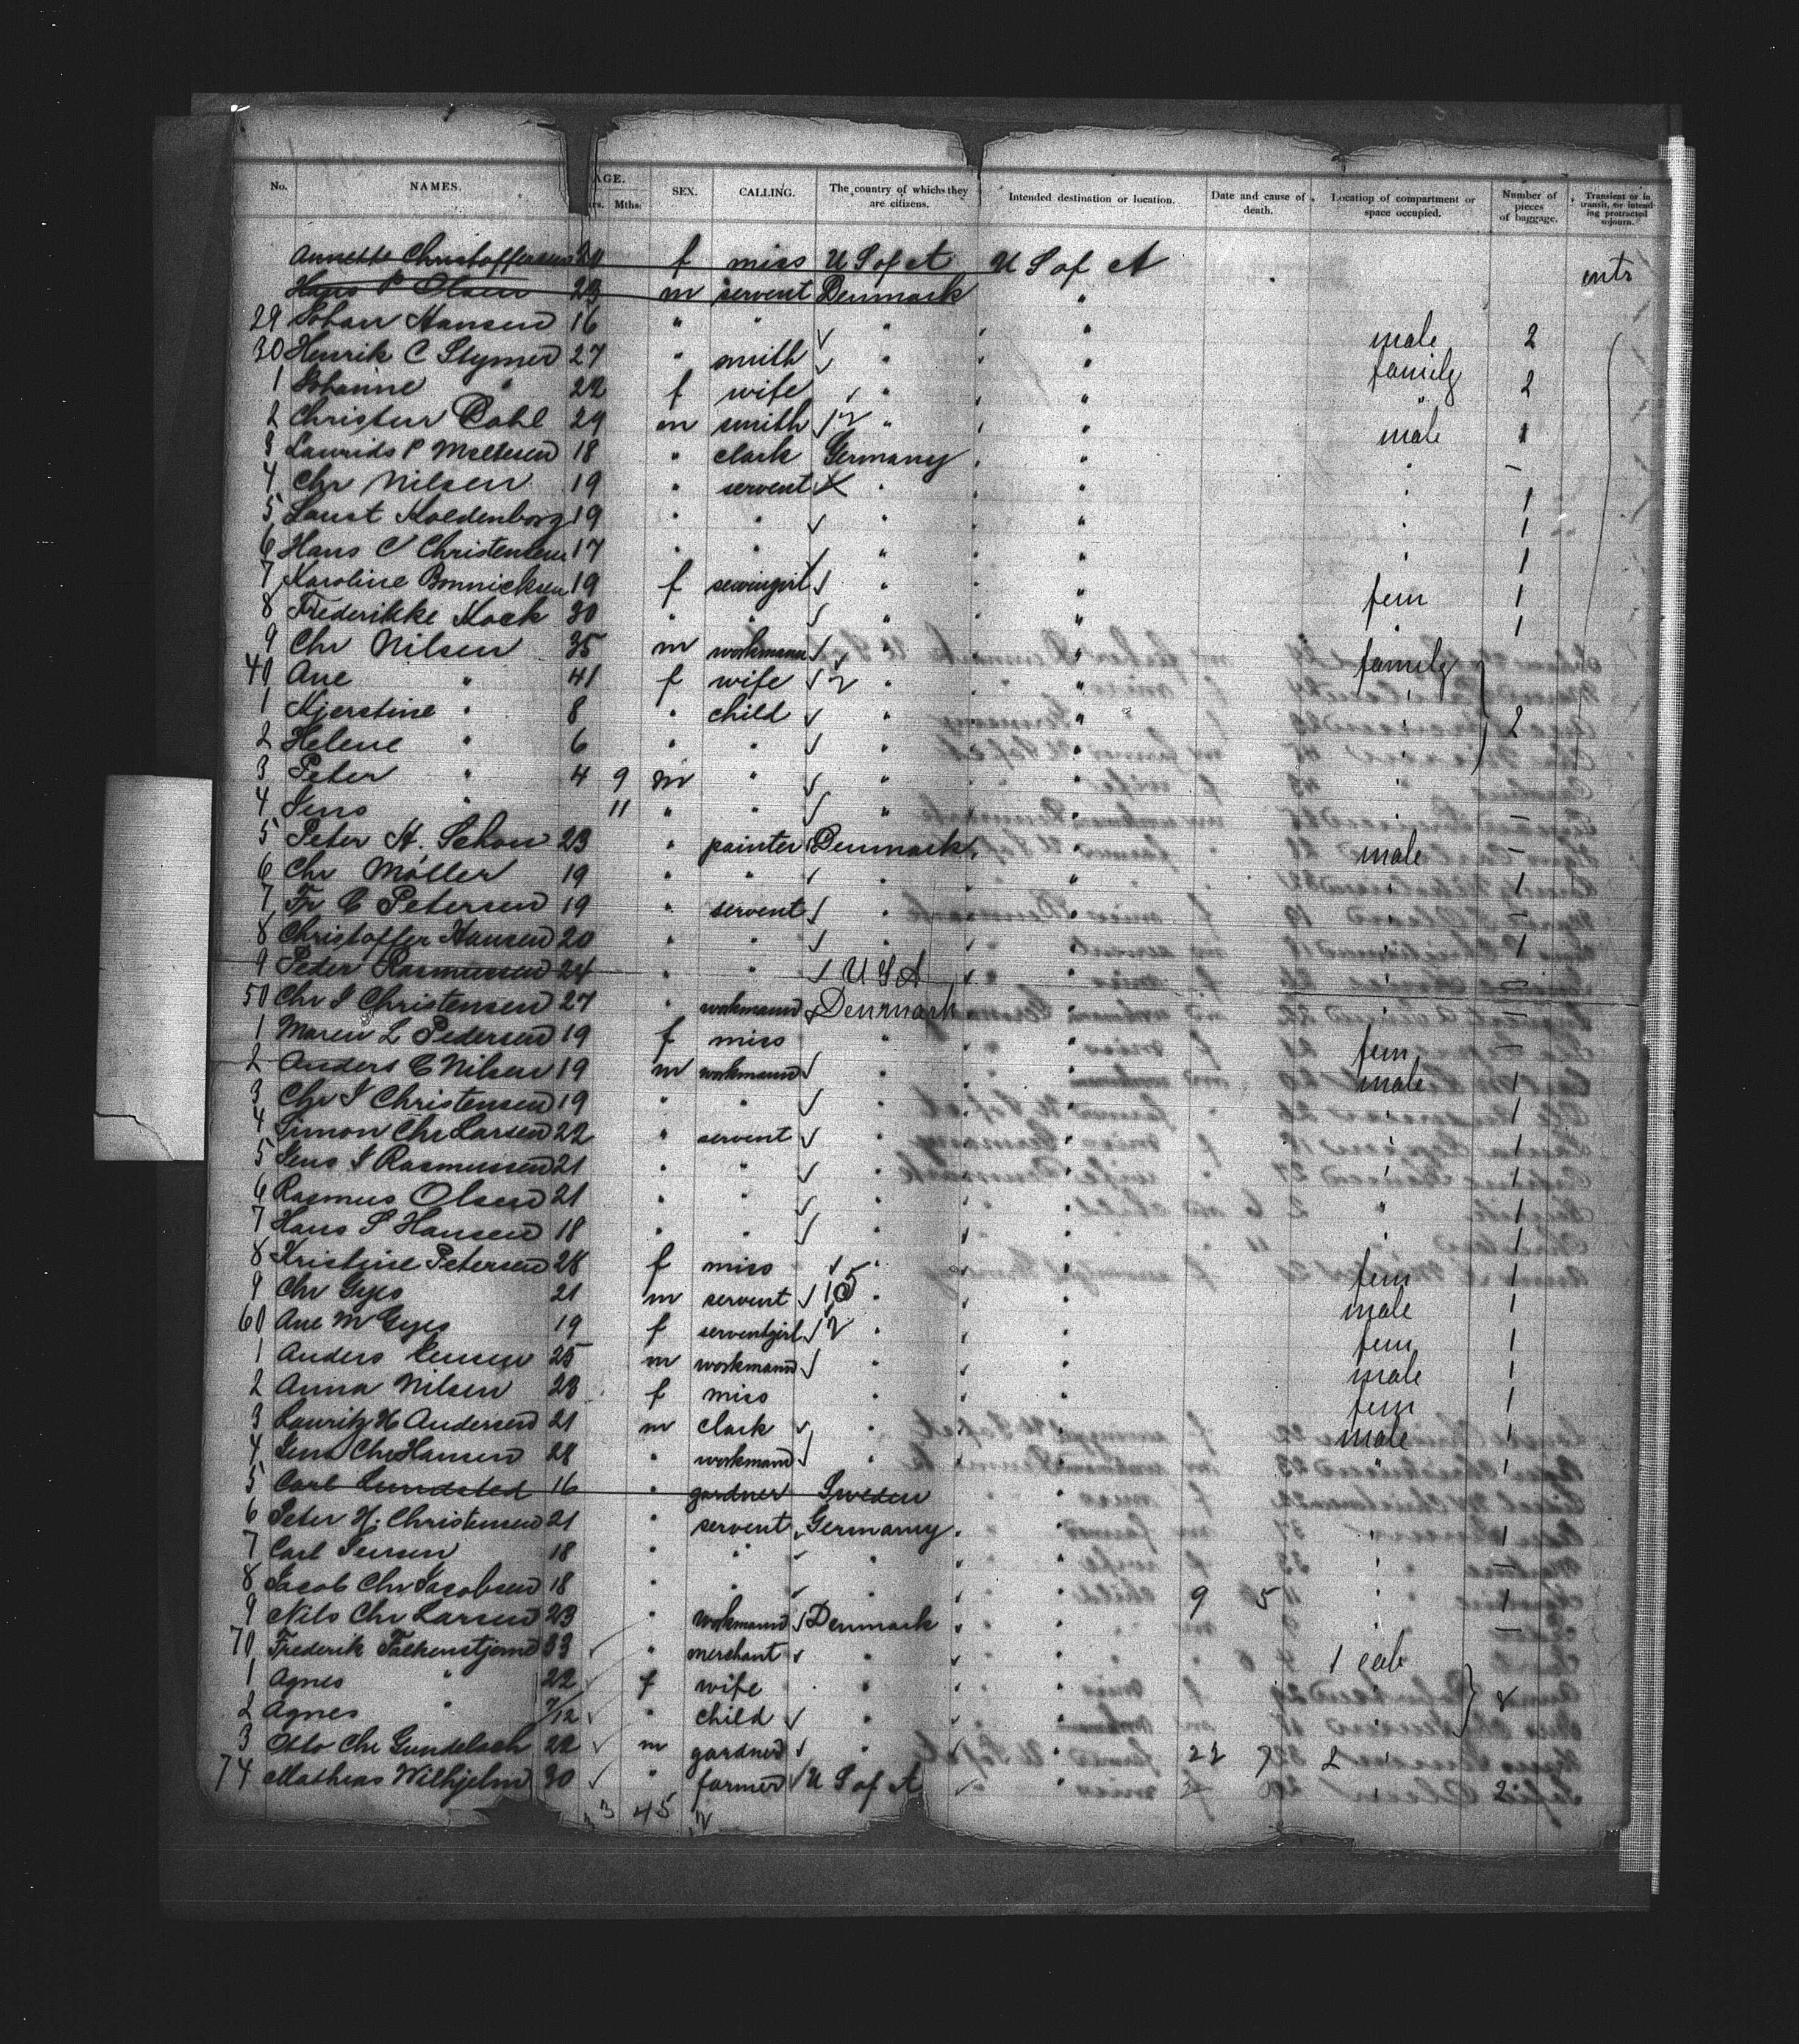 No. NAMES. AGE. Yrs. Mths. SEX. CALLING. The country of which they are citizens. Intended destination or location. Date and cause of death. Location of compartment or space occupied. Number of pieces of baggage. Transient or in transit, or intending protracted sojourn.
Annette Christoffersen f miss U S of A U S of A entr
Hans P Olsen 23 m servent Denmark "
29 Johan Hansen 16 " " " " male 2
30 Henrik C Stymer 27 " smith " " family
1 Johanne " 22 f wife " " " 2
2 Christen Dahl 29 m smith 12 " " male 1
3 Laurids P 18 " clark Germany " " –
4 Chr Nilsen 19 " servent " " " 1
5 Laust Koldenborg 19 " " " " " 1
6 Hans C Christensen 17 " " " " " 1
7 Karoline Bonnicksen 19 f sewingirl " " fem 1
8 Frederikke Kock 30 " " " " " 1
9 Chr Nilsen 35 m workmann " " family
40 Ane " 41 f wife 2 " " "
1 Kjerstine " 8 " child " " " 2
2 Helene " 6 " " " " "
3 Peter " 4 9 m " " "
4 Jens " 11 " " " "
5 Peter H. Schou 23 " painter Denmark " male –
6 Chr Möller 19 " " " " " 1
7 Fr C Petersen 19 " servent " " " –
8 Christoffer Hansen 20 " " " " " 1
9 Peder Rasmussen 24 " " U S A " "
50 Chr J Christensen 27 " workmand Denmark " " –
1 Maren L Pedersen 19 f miss " " fem –
2 Anders C Nilsen 19 m workmand " " male 1
3 Chr J Christensen 19 " " " " " 1
4 Simon Chr Larsen 22 " servent " " " 1
5 Jens J Rasmussen 21 " " " " " 1
6 Rasmus Olsen 21 " " " " " 1
7 Hans S Hansen 18 " " " " " 1
8 Kristine Petersen 28 f miss " " fem 1
9 Chr Gyes 21 m servent 15 " " male 1
60 Ane M Gyes 19 f serventgirl 12 " " fem 1
1 Anders Jensen 25 m workmand " " male 1
2 Anna Nilsen 23 f miss " " fem 1
3 Lauritz H Andersen 21 m clark " " male 1
4 Jens Chr Hansen 28 " workmand " " " 1
5 Carl Lundsted 16 " gardner Sweden
6 Peter H. Christensen 21 " servent Germany " " 1
7 Carl Iversen 18 " " " " " –
8 Jacob Chr Jacobsen 18 " " " " 9 5 " 1
9 Nils Chr Larsen 23 " workmand Denmark " " –
70 Frederik Falkenstjerne 33 " merchant " " 1 cab
1 Agnes " 22 f wife " " " 8
2 Agnes " 7/12 " child " " "
3 Otto Chr Gundelach 22 m gardner " " 22 7 2 "
74 Mathias Wilhjelm 30 " farmer U S of A " " 2
3 45 12